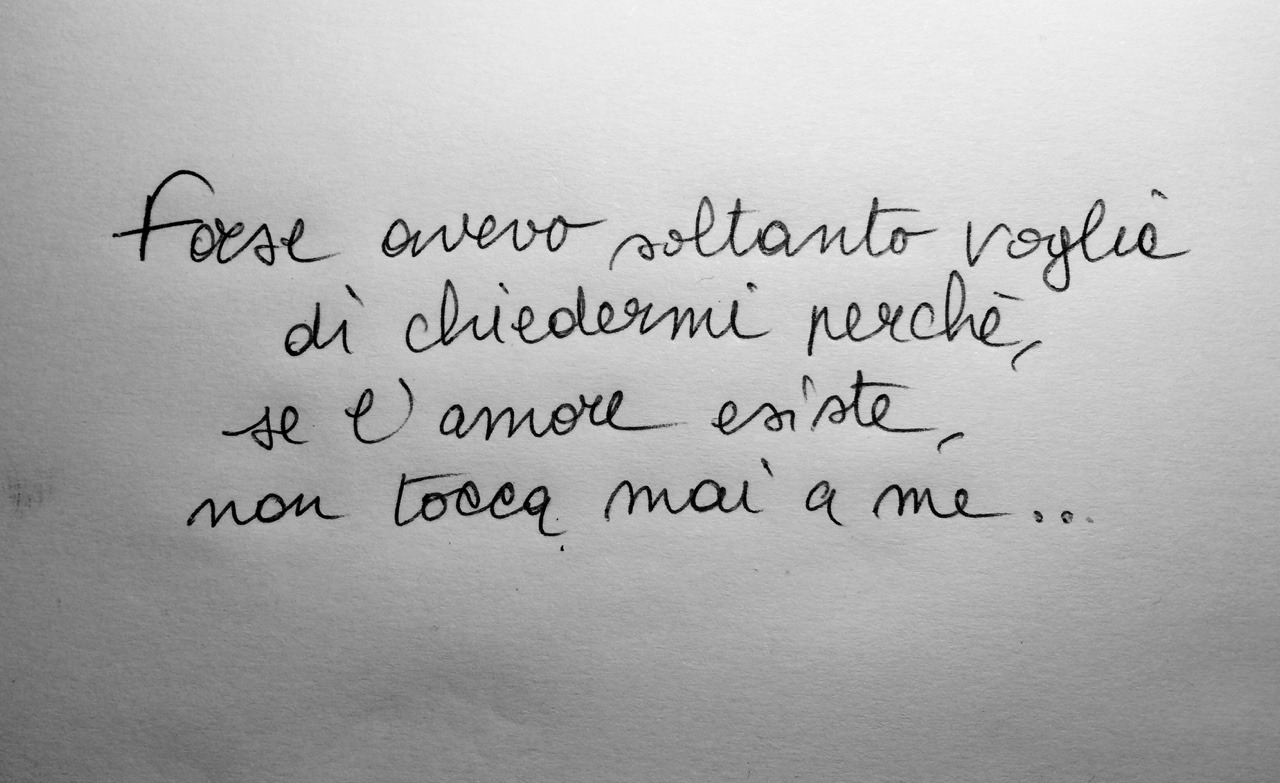 Forse avevo soltanto voglia
di chiedermi perchè,
se l'amore esiste,
non tocca mai a me...